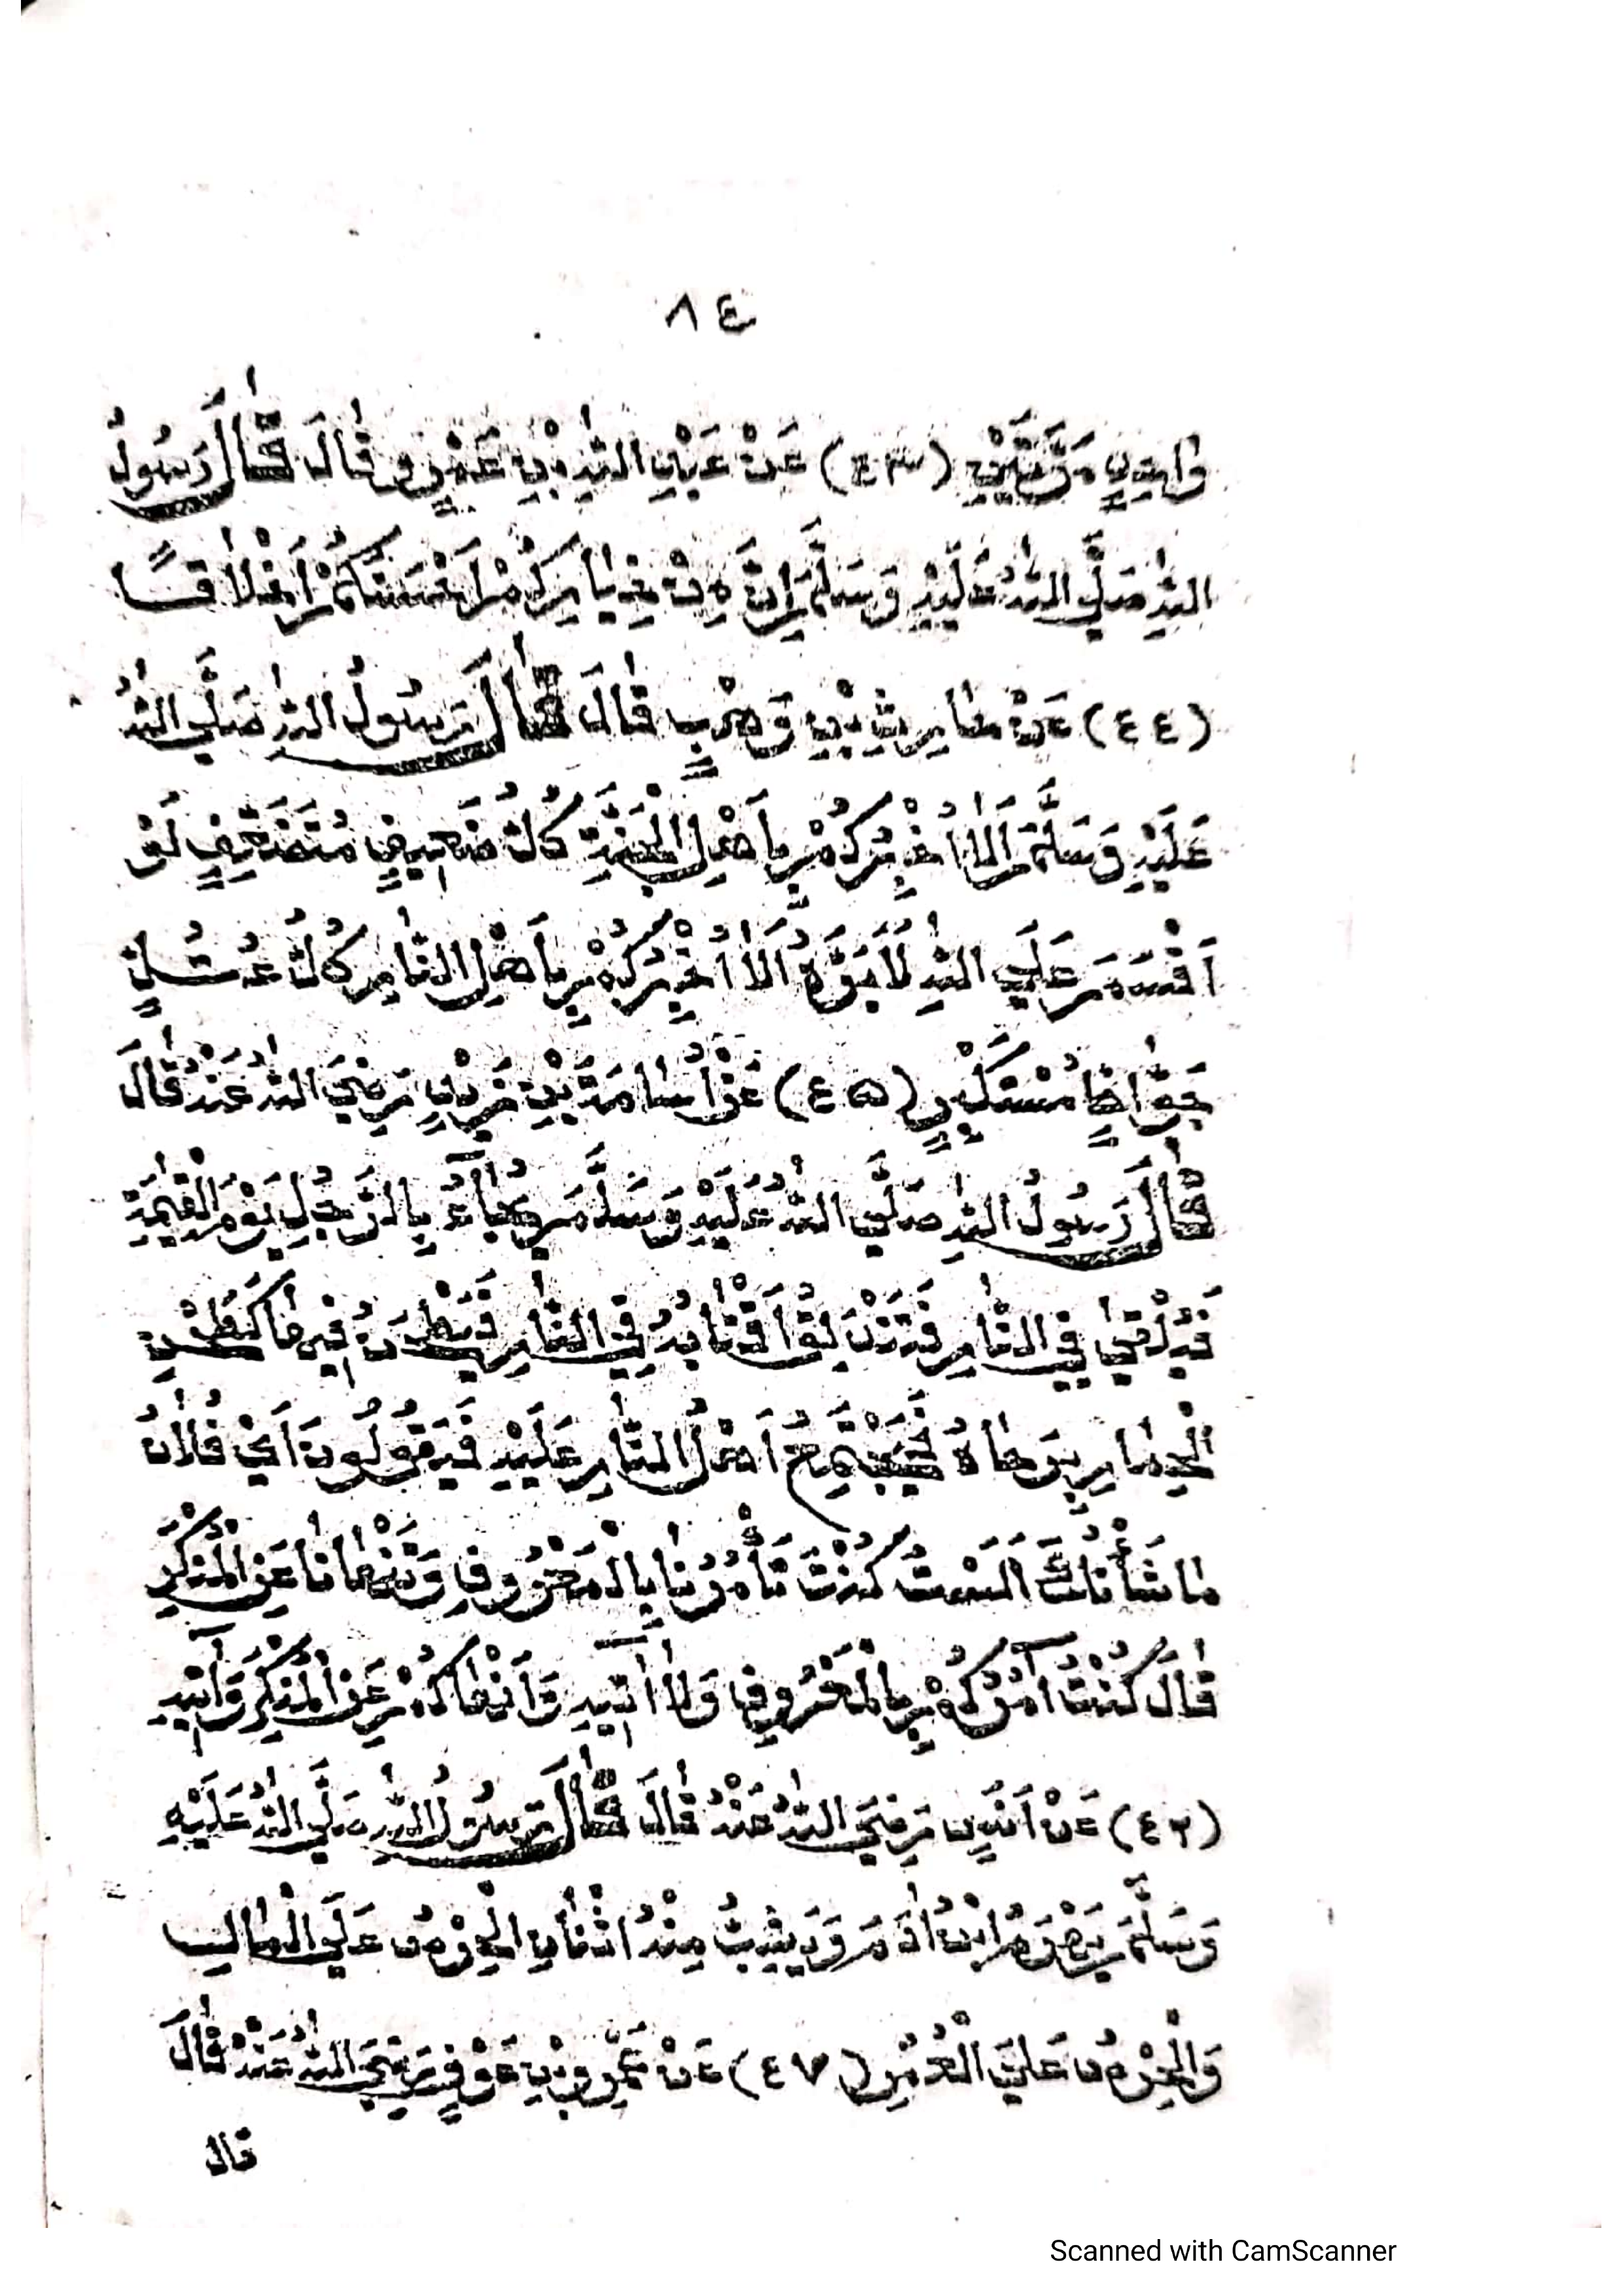 ٨٤
وَاحِدٍ مَرَّتَيْنِ (٤٣) عَنْ عَبْدِ اللهِ بْنِ عَمْرٍو قَالَ قَالَ رَسُولُ
اللهِ صَلَّى اللهُ عَلَيْهِ وَسَلَّمَ اِنَّ مِنْ خِيَارِكُمْ اَحْسَنَكُمْ اَخْلَاقًا
(٤٤) عَنْ حَارِثَةَ بْنِ وَهْبٍ قَالَ قَالَ رَسُولُ اللهِ صَلَّى اللهُ
عَلَيْهِ وَسَلَّمَ اَلَا اُخْبِرُكُمْ بِاَهْلِ الْجَنَّةِ كُلُّ ضَعِيفٍ مُتَضَعِّفٍ لَوْ
اَقْسَمَ عَلَى اللهِ لَاَبَرَّهُ اَلَا اُخْبِرُكُمْ بِاَهْلِ النَّارِ كُلُّ عُتُلٍّ
جَوَّاظٍ مُسْتَكْبِرٍ (٤٥) عَنْ اُسَامَةَ بْنِ زَيْدٍ رَضِيَ اللهُ عَنْهُ قَالَ
قَالَ رَسُولُ اللهِ صَلَّى اللهُ عَلَيْهِ وَسَلَّمَ يُجَآءُ بِالرَّجُلِ يَوْمَ الْقِيٰمَةِ
فَيُلْقٰى فِي النَّارِ فَتَنْدَلِقُ اَقْتَابُهُ فِي النَّارِ فَيَطْحَنُ فِيهَا كَطَحْنِ
الْحِمَارِ بِرَحَاهُ فَيَجْتَمِعُ اَهْلُ النَّارِ عَلَيْهِ فَيَقُولُونَ اَيْ فُلَانُ
مَا شَأْنُكَ اَلَيْسَ كُنْتَ تَأْمُرُنَا بِالْمَعْرُوفِ وَتَنْهَانَا عَنِ الْمُنْكَرِ
قَالَ كُنْتُ آمُرُكُمْ بِالْمَعْرُوفِ وَلَا اٰتِيهِ وَاَنْهَاكُمْ عَنِ الْمُنْكَرِ وَآتِيهِ
(٤٦) عَنْ اَنَسٍ رَضِيَ اللهُ عَنْهُ قَالَ قَالَ رَسُولُ اللهِ صَلَّى اللهُ عَلَيْهِ
وَسَلَّمَ يَهْرَمُ ابْنُ اٰدَمَ وَيَشِبُّ مِنْهُ اثْنَانِ الْحِرْصُ عَلَى الْمَالِ
وَالْحِرْصُ عَلَى الْعُمُرِ (٤٧) عَنْ عَمْرِو بْنِ عَوْفٍ رَضِيَ اللهُ عَنْهُ قَالَ
قال
Scanned with CamScanner